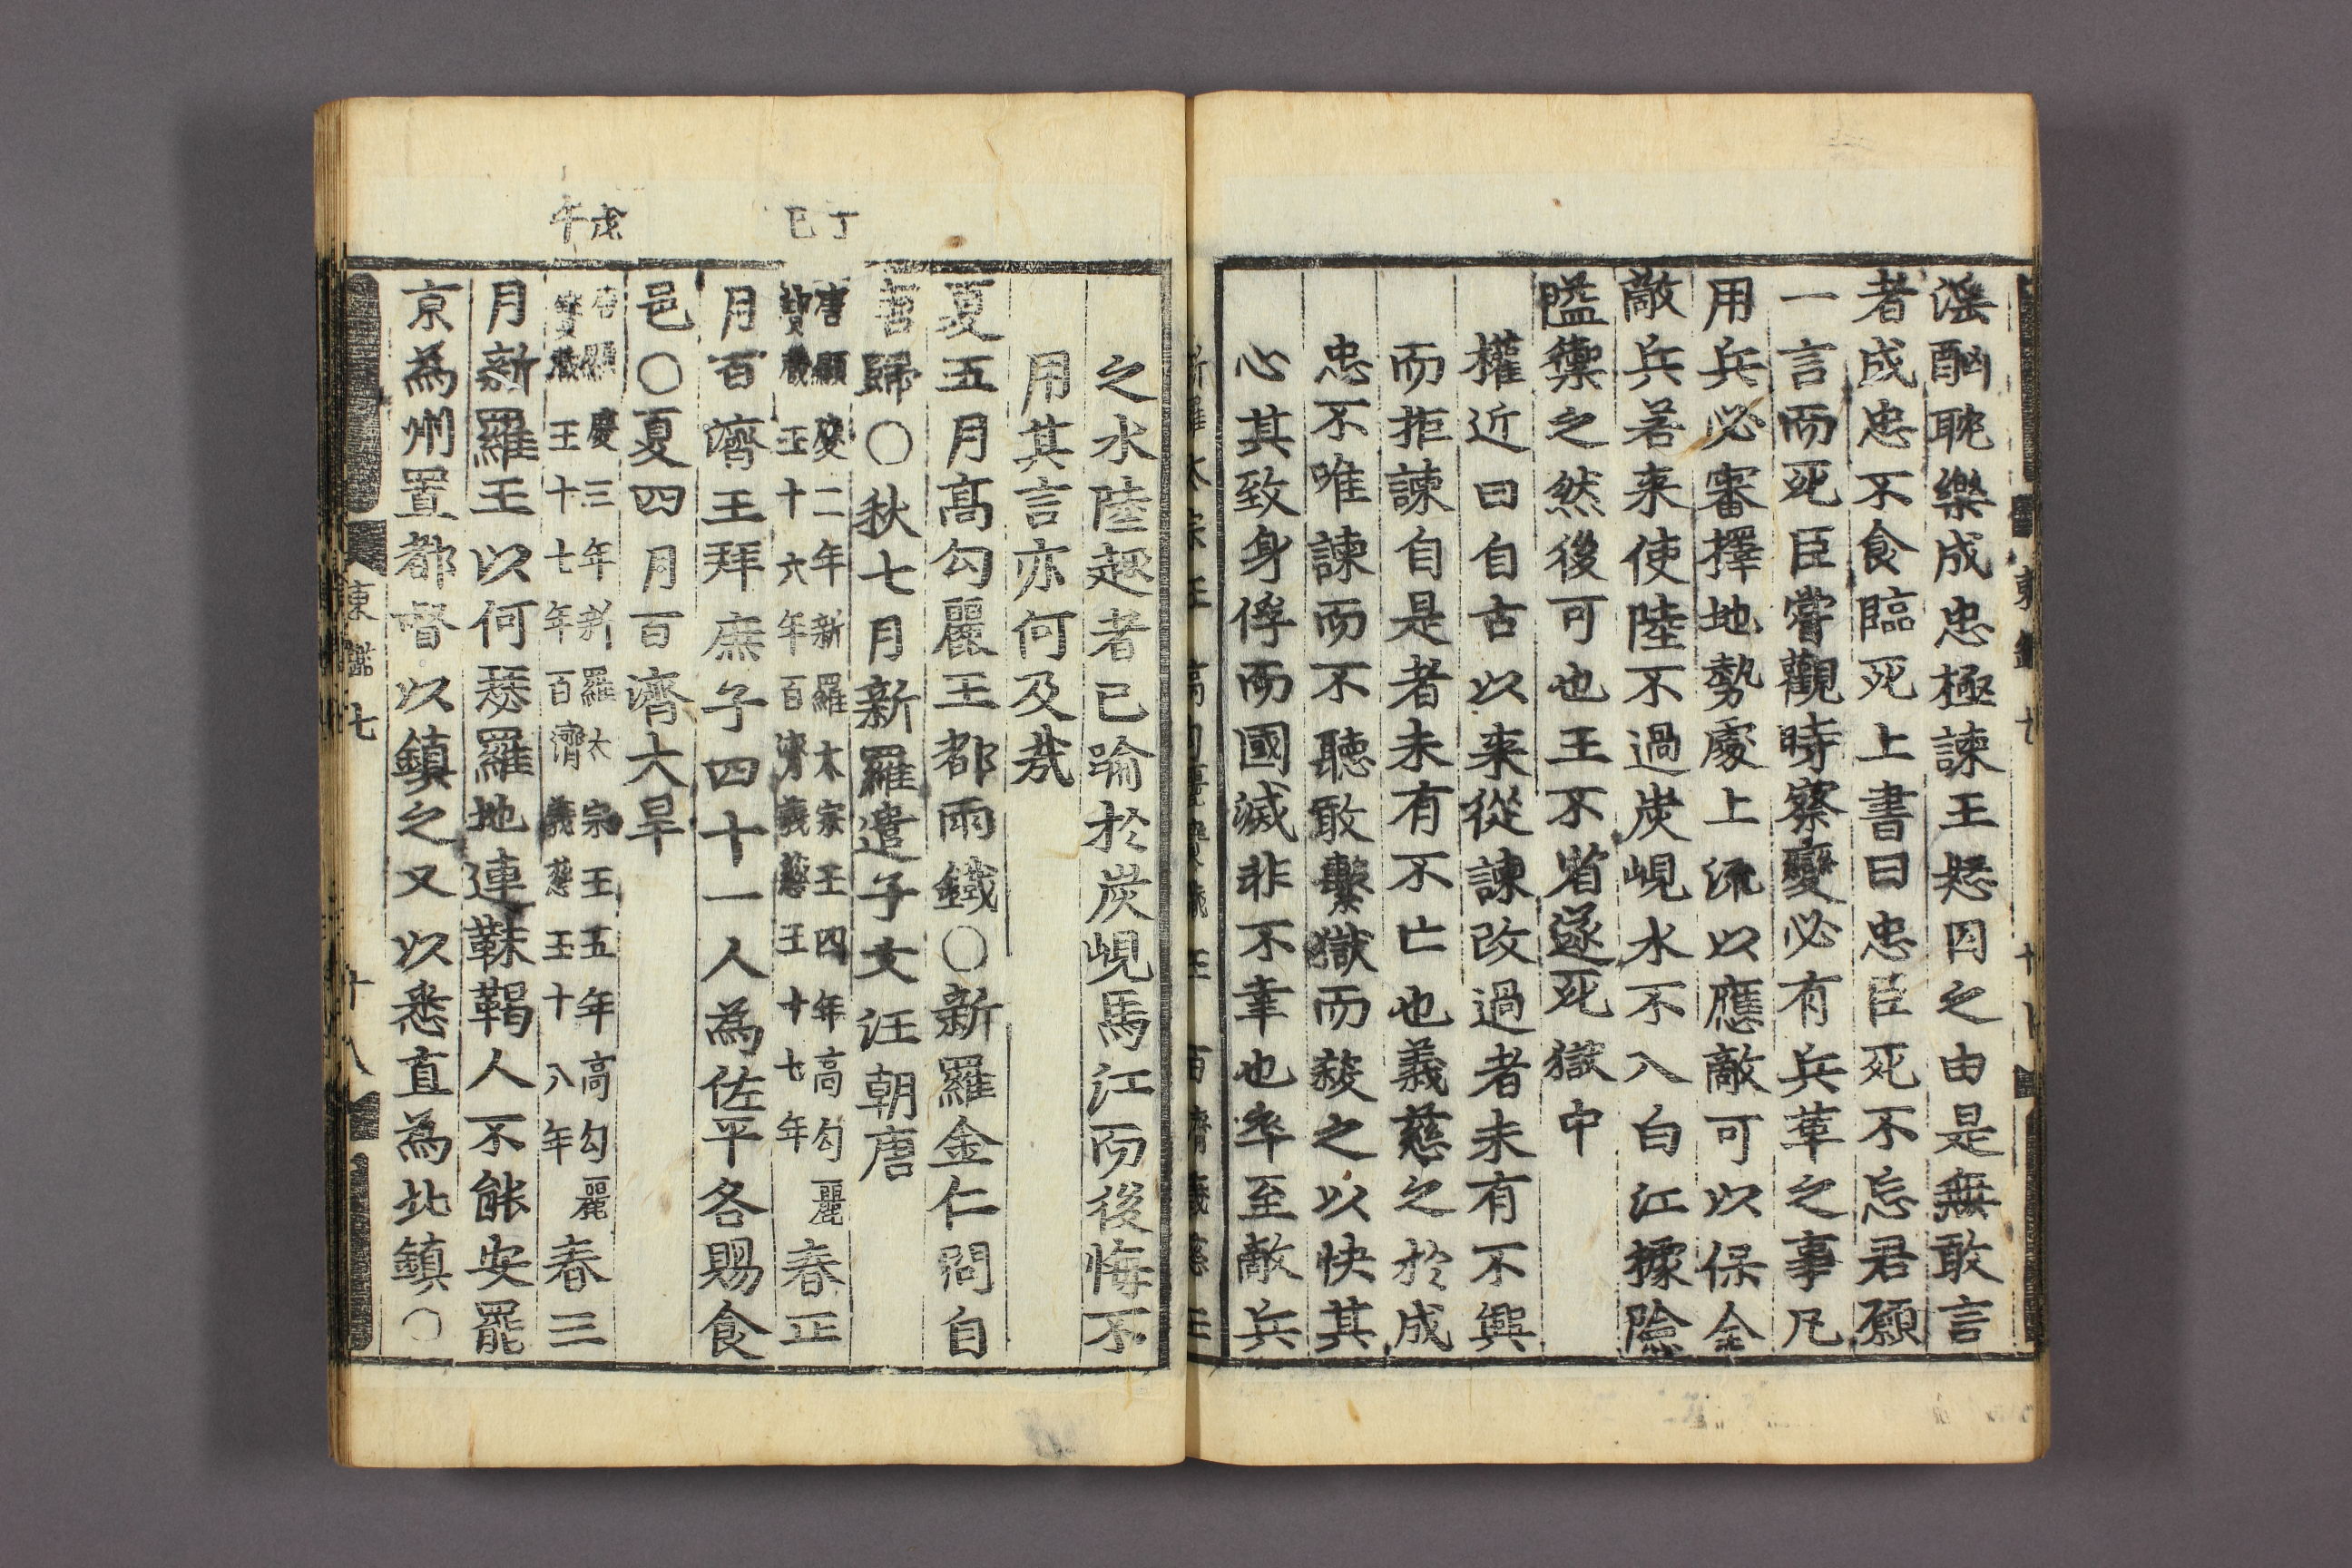 淫酗耽樂成忠極諫王怒囚之由是無敢言
者成忠不食臨死上書曰忠臣死不忘君願
一言而死臣嘗觀時察變必有兵革之事凡
用兵必審擇地勢處上流以應敵可以保全
敵兵若来使陸不過炭峴水不入白江據險
隘禦之然後可也王不省遂死獄中
權近曰自古以来從諫改過者未有不興
而拒諫自是者未有不亡也義慈之於成
忠不唯諫而不聽敢繫獄而殺之以快其
心其致身俘而國滅非不幸也率至敵兵
之水陸趣者已踰於炭峴馬江而後悔不
用其言亦何及㢤
夏五月髙勾麗王都雨鐵○新羅金仁問自
唐歸○秋七月新羅遣子文汪朝唐
丁巳
唐顯慶二年新羅太宗王四年高勾麗
寶藏王十六年百濟義慈王十七年
春正
月百濟王拜庶子四十一人為佐平各賜食
邑○夏四月百濟大旱
戊午
唐顯慶三年新羅太宗王五年高勾麗
寶藏王十七年百濟義慈王十八年
春三
月新羅王以何瑟羅地連靺鞨人不能安罷
京為州置都督以鎮之又以悉直為北鎮○
東鑑七
十八